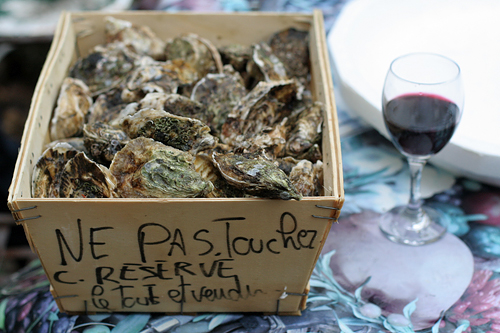 NE PAS. Toucher
C. RÉSERVÉ
le Tout et vendu